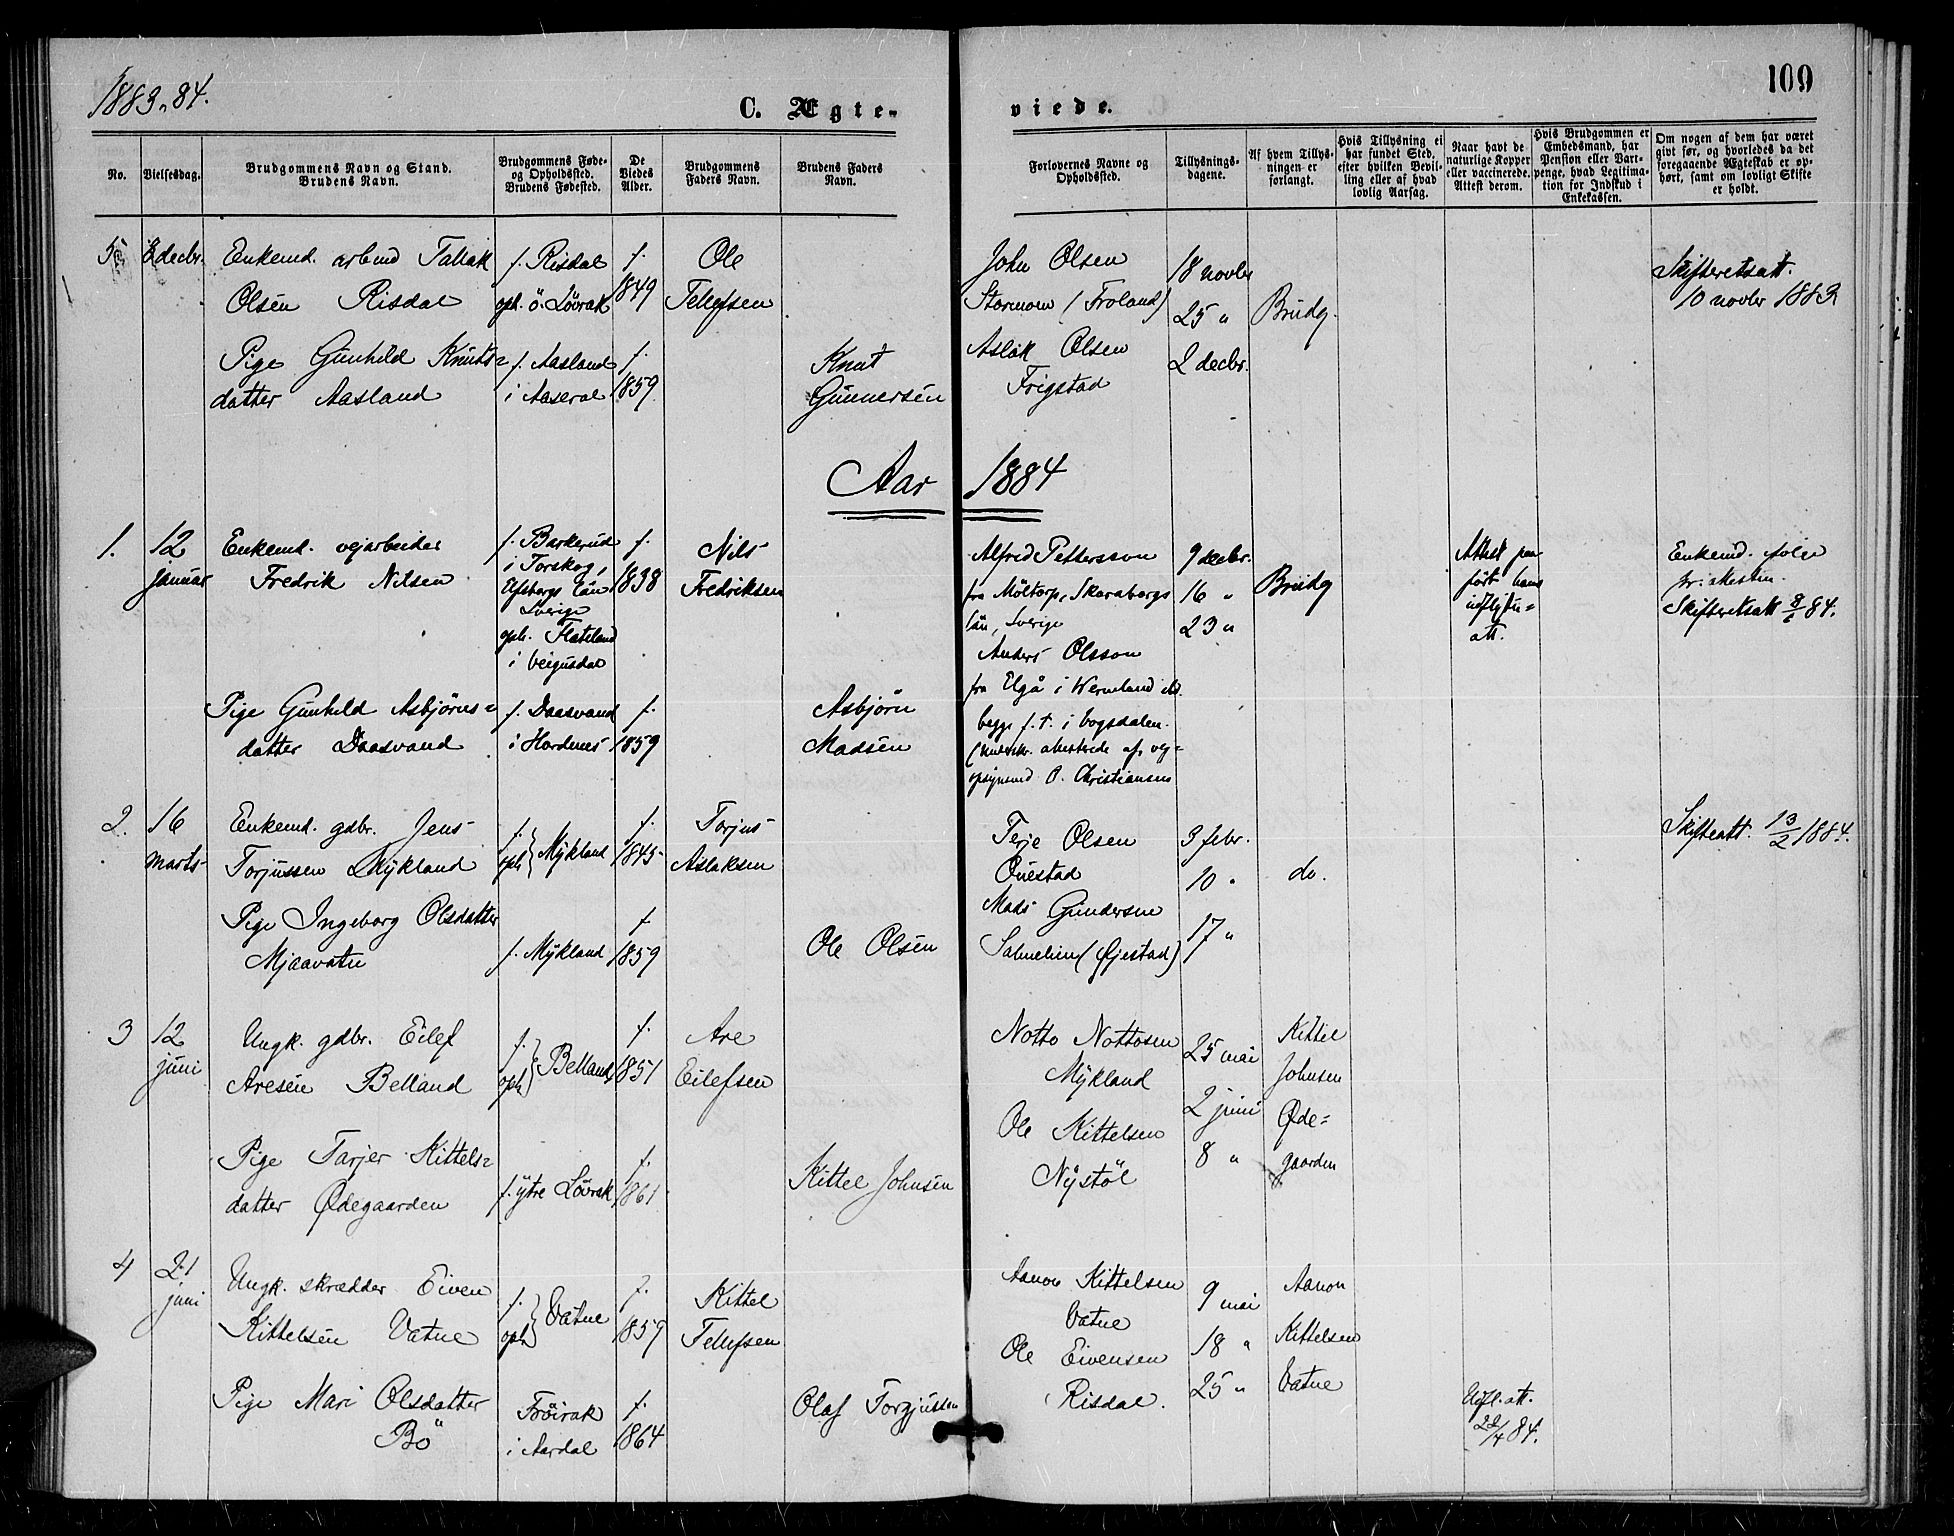 1883-84.
109
C. Ægte-
viede.
No.
Vielsesdag.
Brudgommens Navn og Stand.
Brudens Navn.
Brudgommens Føde-
og Opholdssted.
Brudens Fødested.
De
Viedes
Alder.
Brudgommens
Faders Navn.
Brudens Faders
Navn.
Forlovernes Navne og
Opholdssted.
Tillysnings-
dagene.
Af hvem Tillys-
ningen er
forlangt.
Hvis Tillysning ei
har fundet Sted,
efter hvilken Bevil-
ling eller af hvad
lovlig Aarsag.
Naar havt de
naturlige Kopper
eller vaccinerede.
Attest derom.
Hvis Brudgommen er
Embedsmand, har
Pension eller Vart-
penge, hvad Legitima-
tion for Indskud i
Enkekassen.
Om nogen af dem har været
givt før, og hvorledes da det
foregaaende Ægteskab er op-
hørt, samt om lovligt Skifte
er holdt.
5
2 decbr.
Enkemd. arbmd Tallak
Olsen Risdal
f. Risdal
oph. ö. Lövrak
f.
1849
Ole
Tellefsen
Pige Gunhild Knuts-
datter Aasland
f. Aasland
i Aaseral
f.
1859
Knut
Gunnersen
John Olsen
Stormoen (Froland)
Aslak Olsen
Frigstad
18 novbr
25 "
2 decbr.
Brudg.
Skifteretsatt.
10 novbr 1883
Aar 1884
1.
12
januar
Enkemd. vejarbeider
Fredrik Nilsen
f. Barkerud
i Torskog,
Elfsborgs län
Sverige
oph. Flateland
i Veigusdal
f.
1838
Nils
Fredriksen
Pige Gunhild Asbjörns-
datter Daasvand
f. Daasvand
i Hordnes
f.
1859
Asbjörn
Madsen
Alfred Pettersson
fra Möltorp, Skaraborgs
län, Sverige
Anders Olsson
fra Elgå i Wermland
begge f. t. i Vogsdalen
(underskr. attesterede af vej-
opsynsmd O. Christiansen
9 decbr.
16 "
23 "
Brudg
Attest paa-
fört hans
indflytn-
att.
Enkemd. ifølge
Skifteretsatt 8/1 84.
2.
16
marts
Enkemd. gdbr. Jens
Torjussen Mykland
f.
oph } Mykland
f.
1845
Torjus
Aslaksen
Pige Ingeborg Olsdatter
Mjaavatn
f. Mykland
f.
1859
Ole Olsen
Terje Olsen
Ouestad
Mads Gundersen
(Øjestad)
3 febr.
10 "
17 "
do.
Skifteatt. 13/2 1884.
3
12
juni
Ungk. gdbr. Eilef
Aresen Belland
f.
oph } Belland
f.
1851
Are
Eilefsen
Pige Tarjer Kittels-
datter Ødegaarden
f. ytre Lövrak
f.
1861
Kittel Johnsen
Notto Nottosen
Mykland
Ole Kittelsen
Nystöl
25 mai
2 juni
8 "
Kittel
Johnsen
Øde-
gaarden
4
21
juni
Ungk. skrædder Eiven
Kittelsen Vatne
f.
oph } Vatne
f.
1859
Kittel
Tellefsen
Pige Mari Olsdatter
Bö
Fröirak
i Aardal
f.
1864
Olaf Torgjussen
Aanon Kittelsen
Vatne
Ole Eivensen
Risdal.
9 mai
18 "
25 "
Aanon
Kittelsen
Vatne
Udfl. att.
22/4 84.